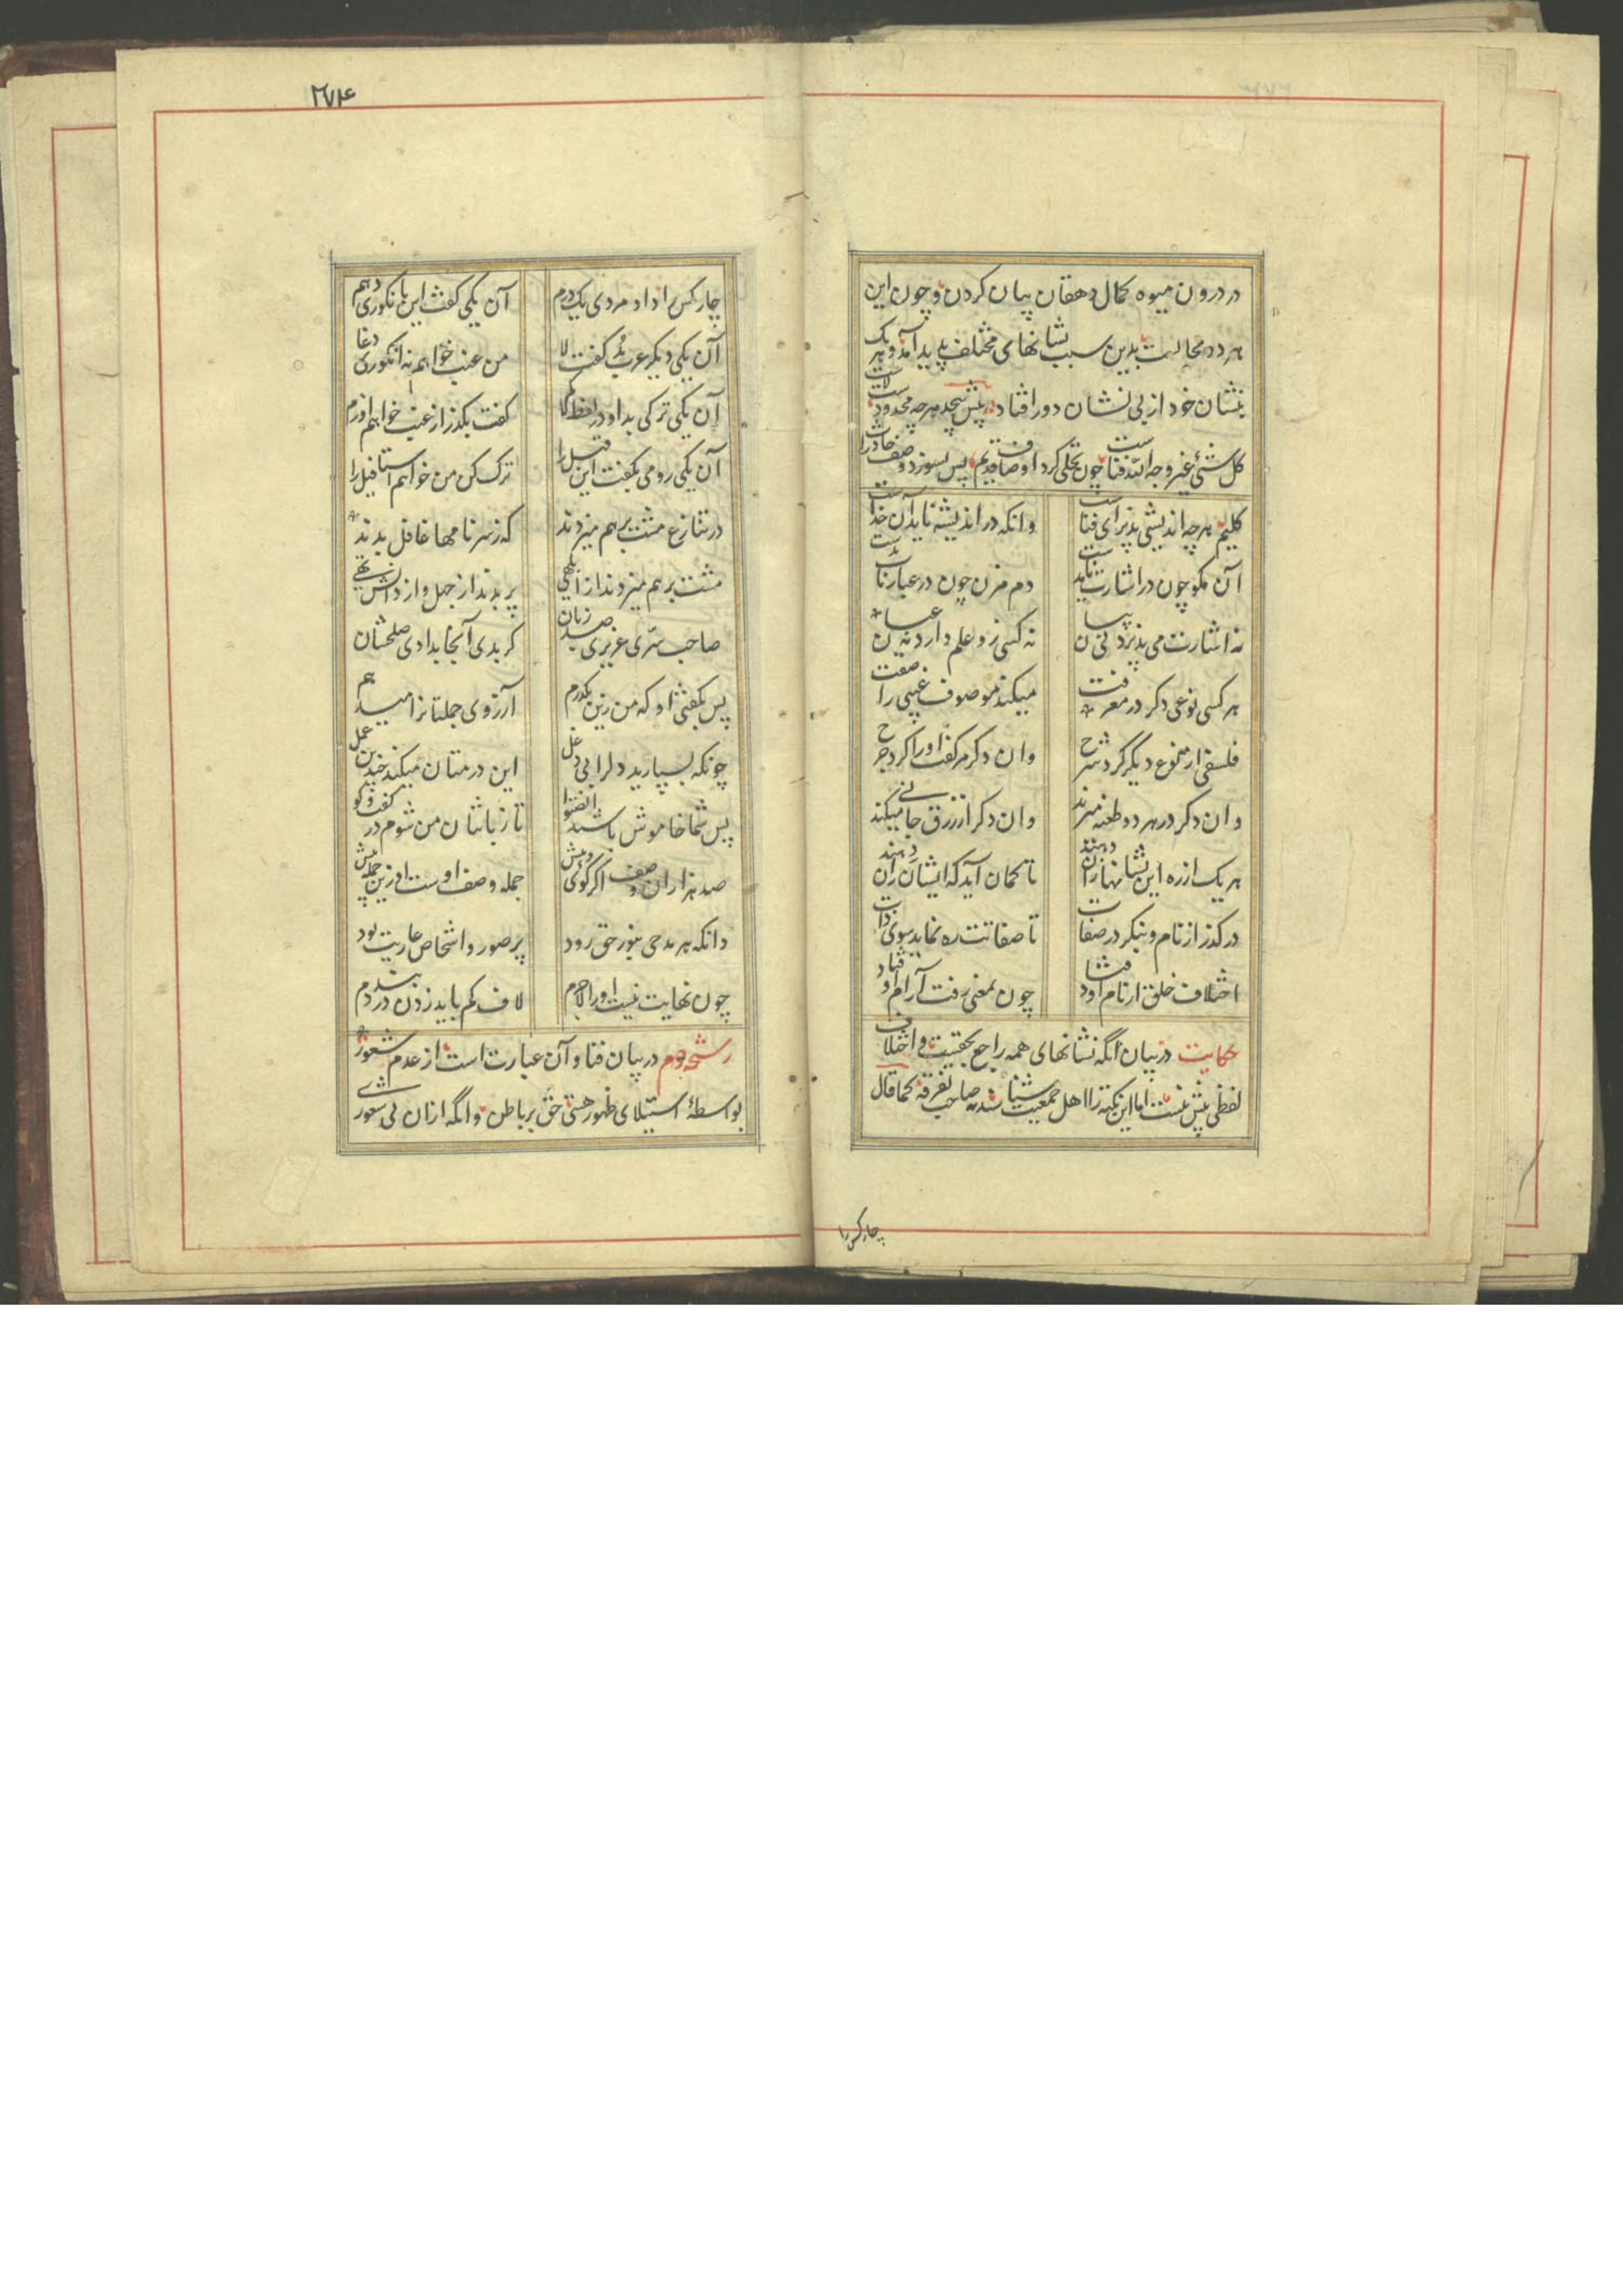 در درون میوه کمال دهقان بیان کردن و چون این
هر دو محالیت بدین سبب نشانهای مختلف پدید آمد و هر یک
بنشان خود از بی نشان دور افتاد پیش بیحد هر چه محدودست لاست
کل شئ غیر وجه الله فناست چون تجلی کرد اوصاف قدیم پس بسوزد وصف حادث را
کلیم هر چه اندیشی پذیرای فناست وانکه در اندیشه ناید آن خداست
آن مگو چون در اشارت نایدت دم مزن چون در عبارت نایدت
نه اشارت می پذیرد نی بیان نه کسی زو علم دارد نه عیان
هر کسی نوعی دکر در معرفت میکند موصوف غیبی را صفت
فلسفی از نوع دیگر کرد شرح وان دکر مر گفت او را کرد جرح
وان دکر در هر دو طعنه میزند وان دکر از زرق جانی میکند
هر یک از ره این نشانها زان دهند تا گمان آید که ایشان زان دهند
در کذر از نام و بنکر در صفات تا صفاتت ره نماید سوی ذات
اختلاف خلق از نام اوفتاد چون بمعنی رفت آرام اوفتاد
حکایت در بیان آنکه نشانهای همه راجع بحقیقیت و اختلاف
لفظی بیش نیست اما این نکته را اهل جمعیت شناسند نه صاحب تفرقه کما قال
چارکس را
۲۷۴
چارکس را داد مردی یک درم آن یکی گفت این بانکوری دهم
آن یکی دیکر عرب بُد گفت لا من عنب خواهم نه انکوری دغا
آن یکی ترکی بد او در لفظ گفت بکذر از عنب خواهم اوزم
آن یکی رومی بگفت این قیل را ترک کن من خواهم استافیل را
در تنازع مشت برهم میزدند که ز سر نامها غافل بدند
مشت برهم میزدند از ابلهی پر بدند از جهل و از دانش تهی
صاحب سرّی عزیزی صد زبان کر بدی آنجا بدادی صلحشان
پس بگفتی او که من زین یکدرم آرزوی جملتانرا میدهم
چونکه بسپارید دلرا بی دغل این درمتان میکند چندین عمل
پس شما خاموش باشید انصتوا تا زبانتان من شوم در گفت و کو
صد هزاران وصف اکر گوئی و بیش جمله وصف اوست او زین جمله پیش
دانکه هر مدحی بنور حق رود بر صور و اشخاص عاریت بود
چون نهایت نیست او را لاجرم لاف کم باید زدن در بند دم
رشحه دوم در بیان فنا و آن عبارت است از عدم شعور
بواسطهٔ استیلای ظهور هستی حق بر باطن و انگه ازان بی شعوری